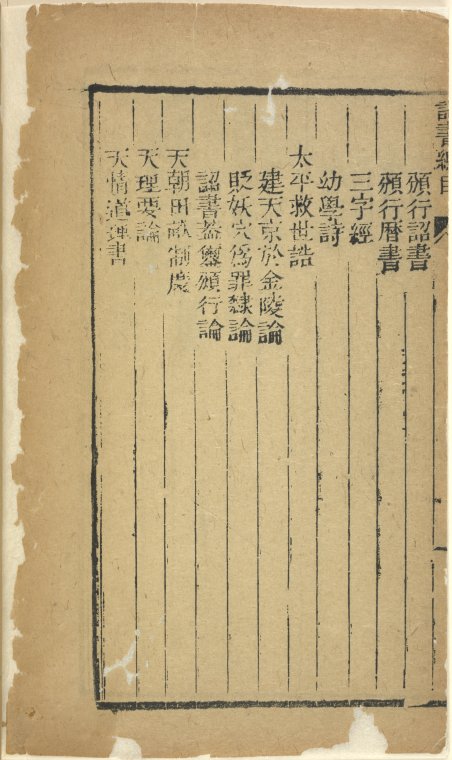 詔書總目
頒行詔書
頒行曆書
三字經
幼學詩
太平救世誥
建天京於金陵論
貶妖穴為罪隸論
詔書蓋璽頒行論
天朝田畝制度
天理要論
天情道理書